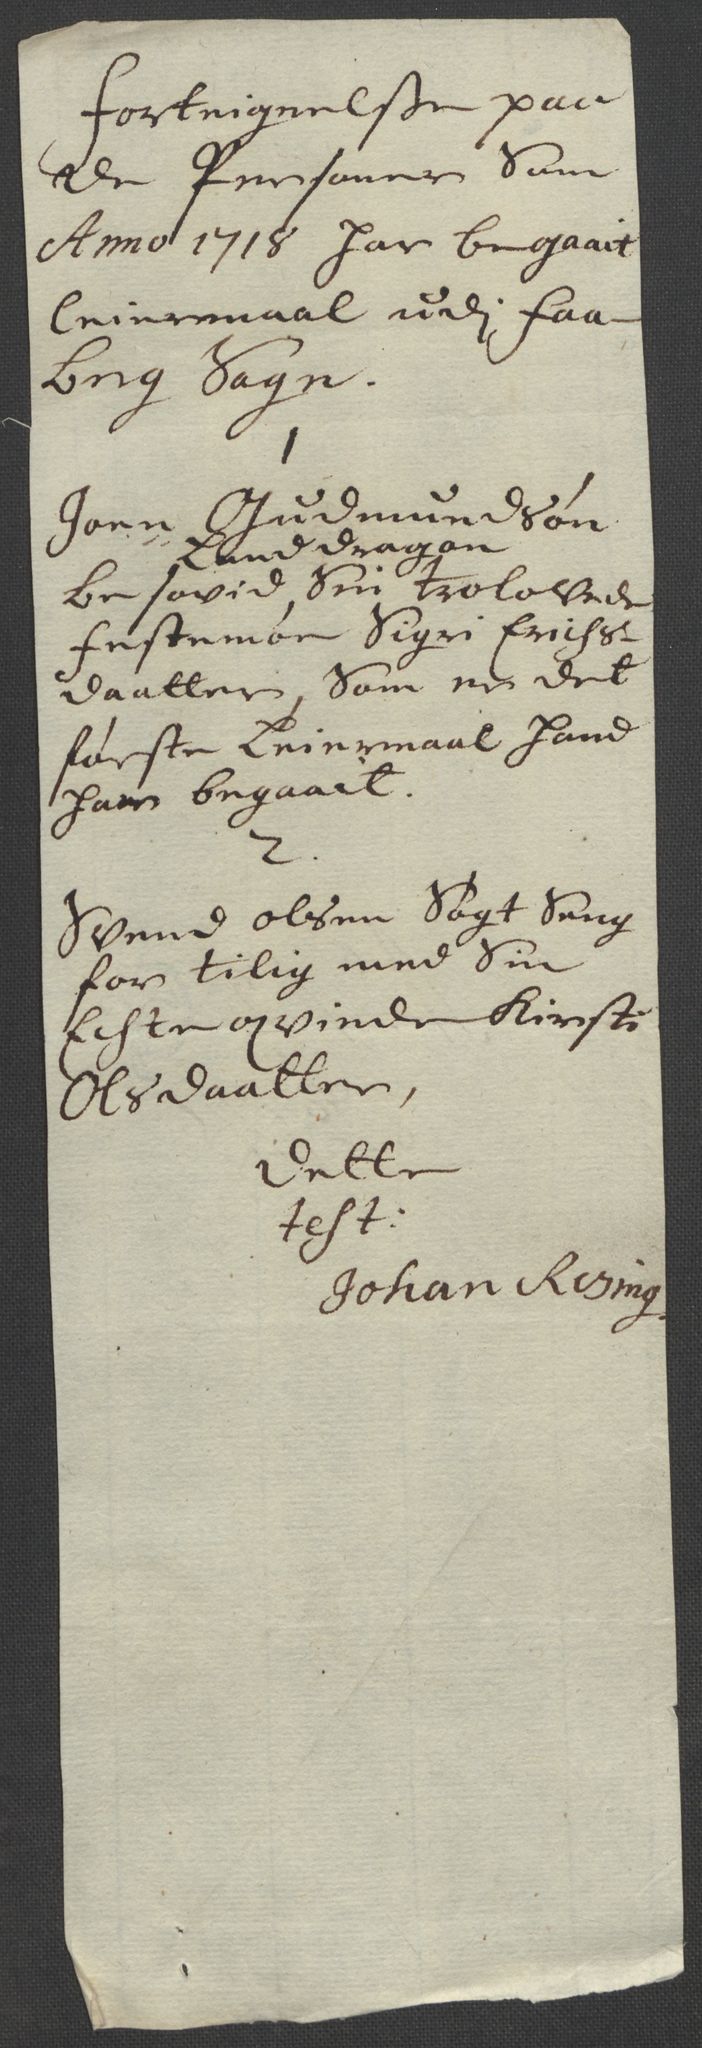 forteignelsse paa
de Personer Som
Anno 1718 har begaait
leiermaal udj faa-
berg Sogn.
1
Joen Gudmundsøn
Land dragon
besovid, Sin trolovede
festemøe Sigri Erichs-
daatter, Som er det
første Leiermaal hand
har begaait.
2.
Svend olsen Søgt Seng
for tilig med Sin
Echte qvinde Kirsti
Olsdaatter,
dette
test:
Johan